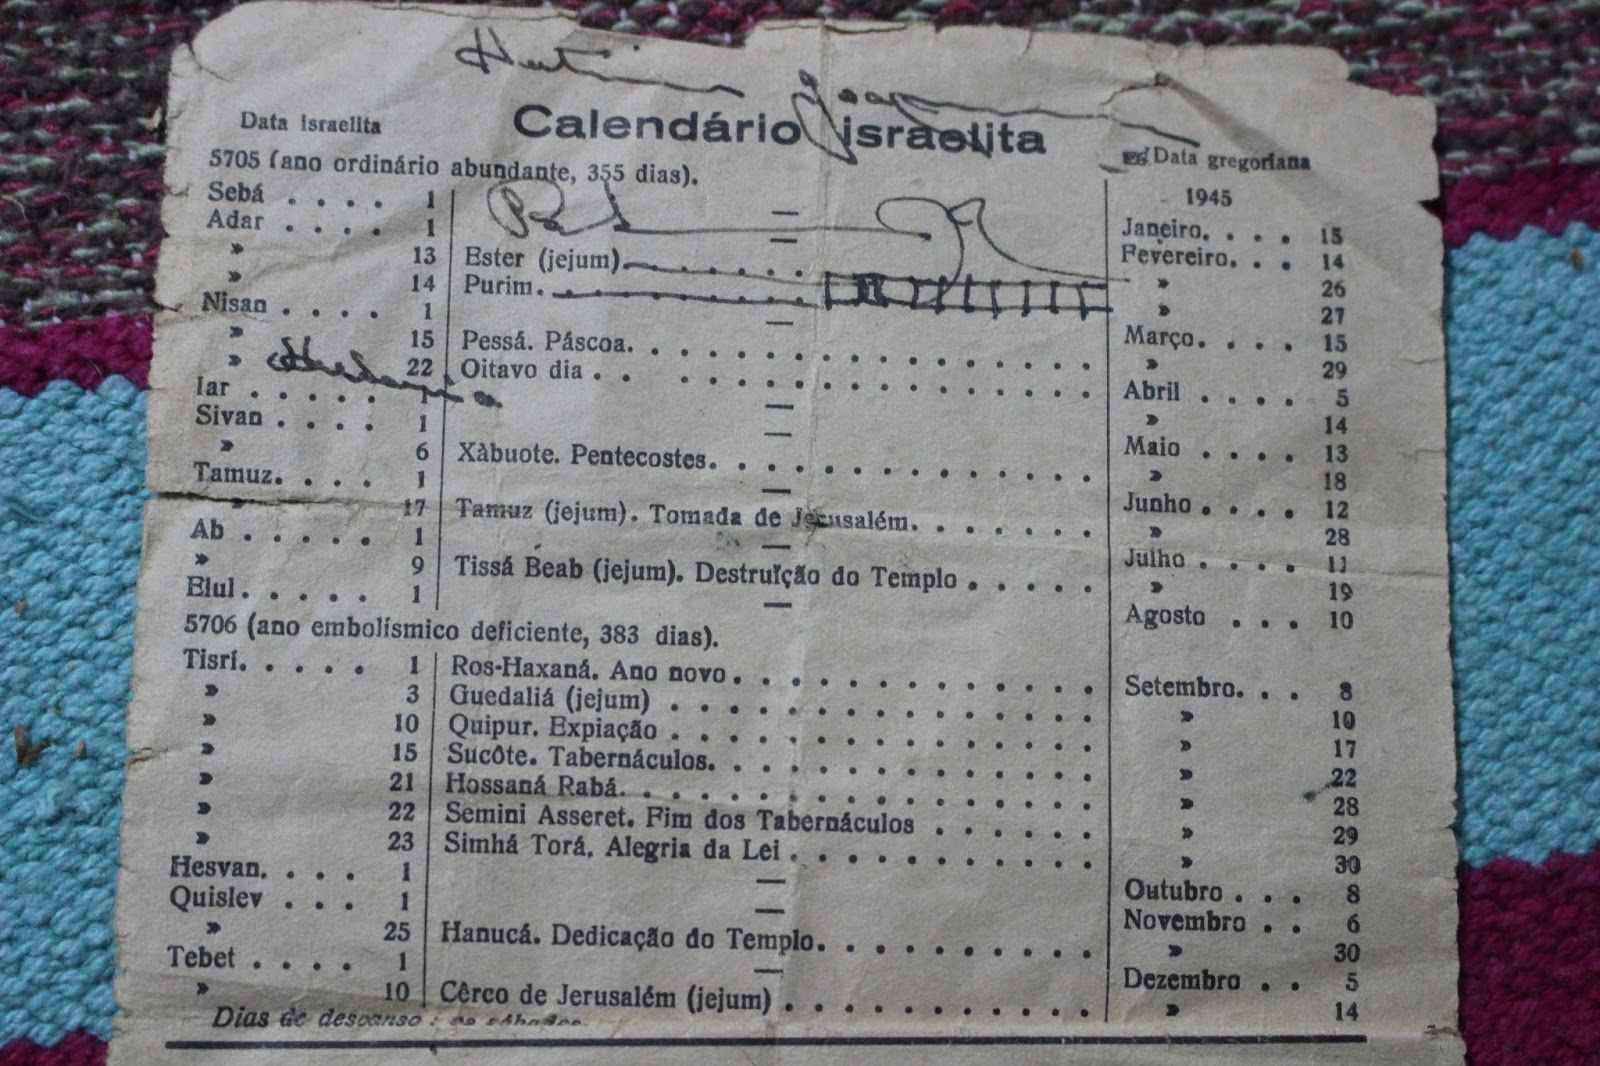 Calendário israelita
Data israelita
Data gregoriana
5705 (ano ordinário abundante, 355 dias).
1945
Sebá . . . . 1 — Janeiro. . . . 15
Adar . . . . 1 — Fevereiro. . . 14
» 13 Ester (jejum) . . . . . . » 26
» 14 Purim. . . . . . . . . . » 27
Nisan . . . . 1 — Março. . . . 15
» 15 Pessá. Páscoa. . . . . . . . . . . . . . . . . » 29
» 22 Oitavo dia . . . . . . . . . . . . . . . . . Abril . . . . 5
Iar . . . . . 1 — » 14
Sivan . . . . 1 — Maio . . . . 13
» 6 Xàbuote. Pentecostes. . . . . . . . . . . . . . » 18
Tamuz. . . . 1 — Junho . . . . 12
» 17 Tamuz (jejum). Tomada de Jerusalém. . . . . . . » 28
Ab . . . . . 1 — Julho . . . . 11
» 9 Tissá Beab (jejum). Destruïção do Templo . . . . . » 19
Elul. . . . . 1 — Agosto . . . 10
5706 (ano embolísmico deficiente, 383 dias).
Tisri. . . . . 1 Ros-Haxaná. Ano novo. . . . . . . . . . . . . Setembro. . . 8
» 3 Guedaliá (jejum) . . . . . . . . . . . . . . . » 10
» 10 Quipur. Expiação . . . . . . . . . . . . . . . » 17
» 15 Sucôte. Tabernáculos. . . . . . . . . . . . . . » 22
» 21 Hossaná Rabá. . . . . . . . . . . . . . . . . » 28
» 22 Semini Asseret. Fim dos Tabernáculos . . . . . . » 29
» 23 Simhá Torá. Alegria da Lei . . . . . . . . . . . » 30
Hesvan. . . . 1 — Outubro . . . 8
Quislev . . . 1 — Novembro . . 6
» 25 Hanucá. Dedicação do Templo. . . . . . . . . . » 30
Tebet . . . . 1 — Dezembro . . 5
» 10 Cêrco de Jerusalém (jejum) . . . . . . . . . . . » 14
Dias de descanso: os sábados.